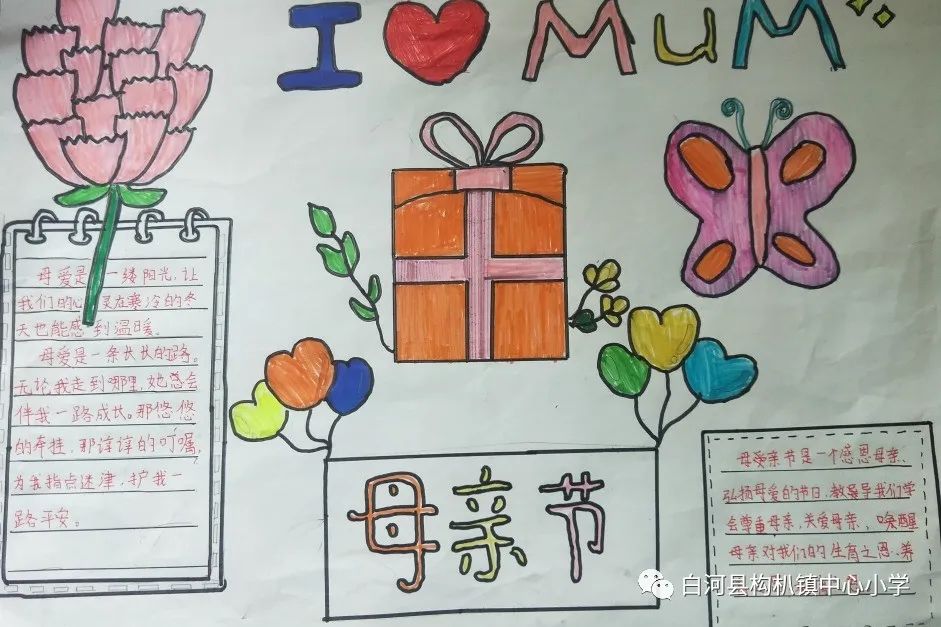 I MuM
母爱是一缕阳光,让
我们的心灵在寒冷的冬
天也能感到温暖。
母爱是一条长长的路。
无论我走到哪里,她总会
伴我一路成长。那悠悠
的牵挂,那谆谆的叮嘱,
为我指点迷津,护我一
路平安。
母亲节
母爱亲节是一个感恩母亲、
弘扬母爱的节日,教导我们学
会尊重母亲,关爱母亲,唤醒
母亲对我们的生育之恩、养
白河县构朳镇中心小学